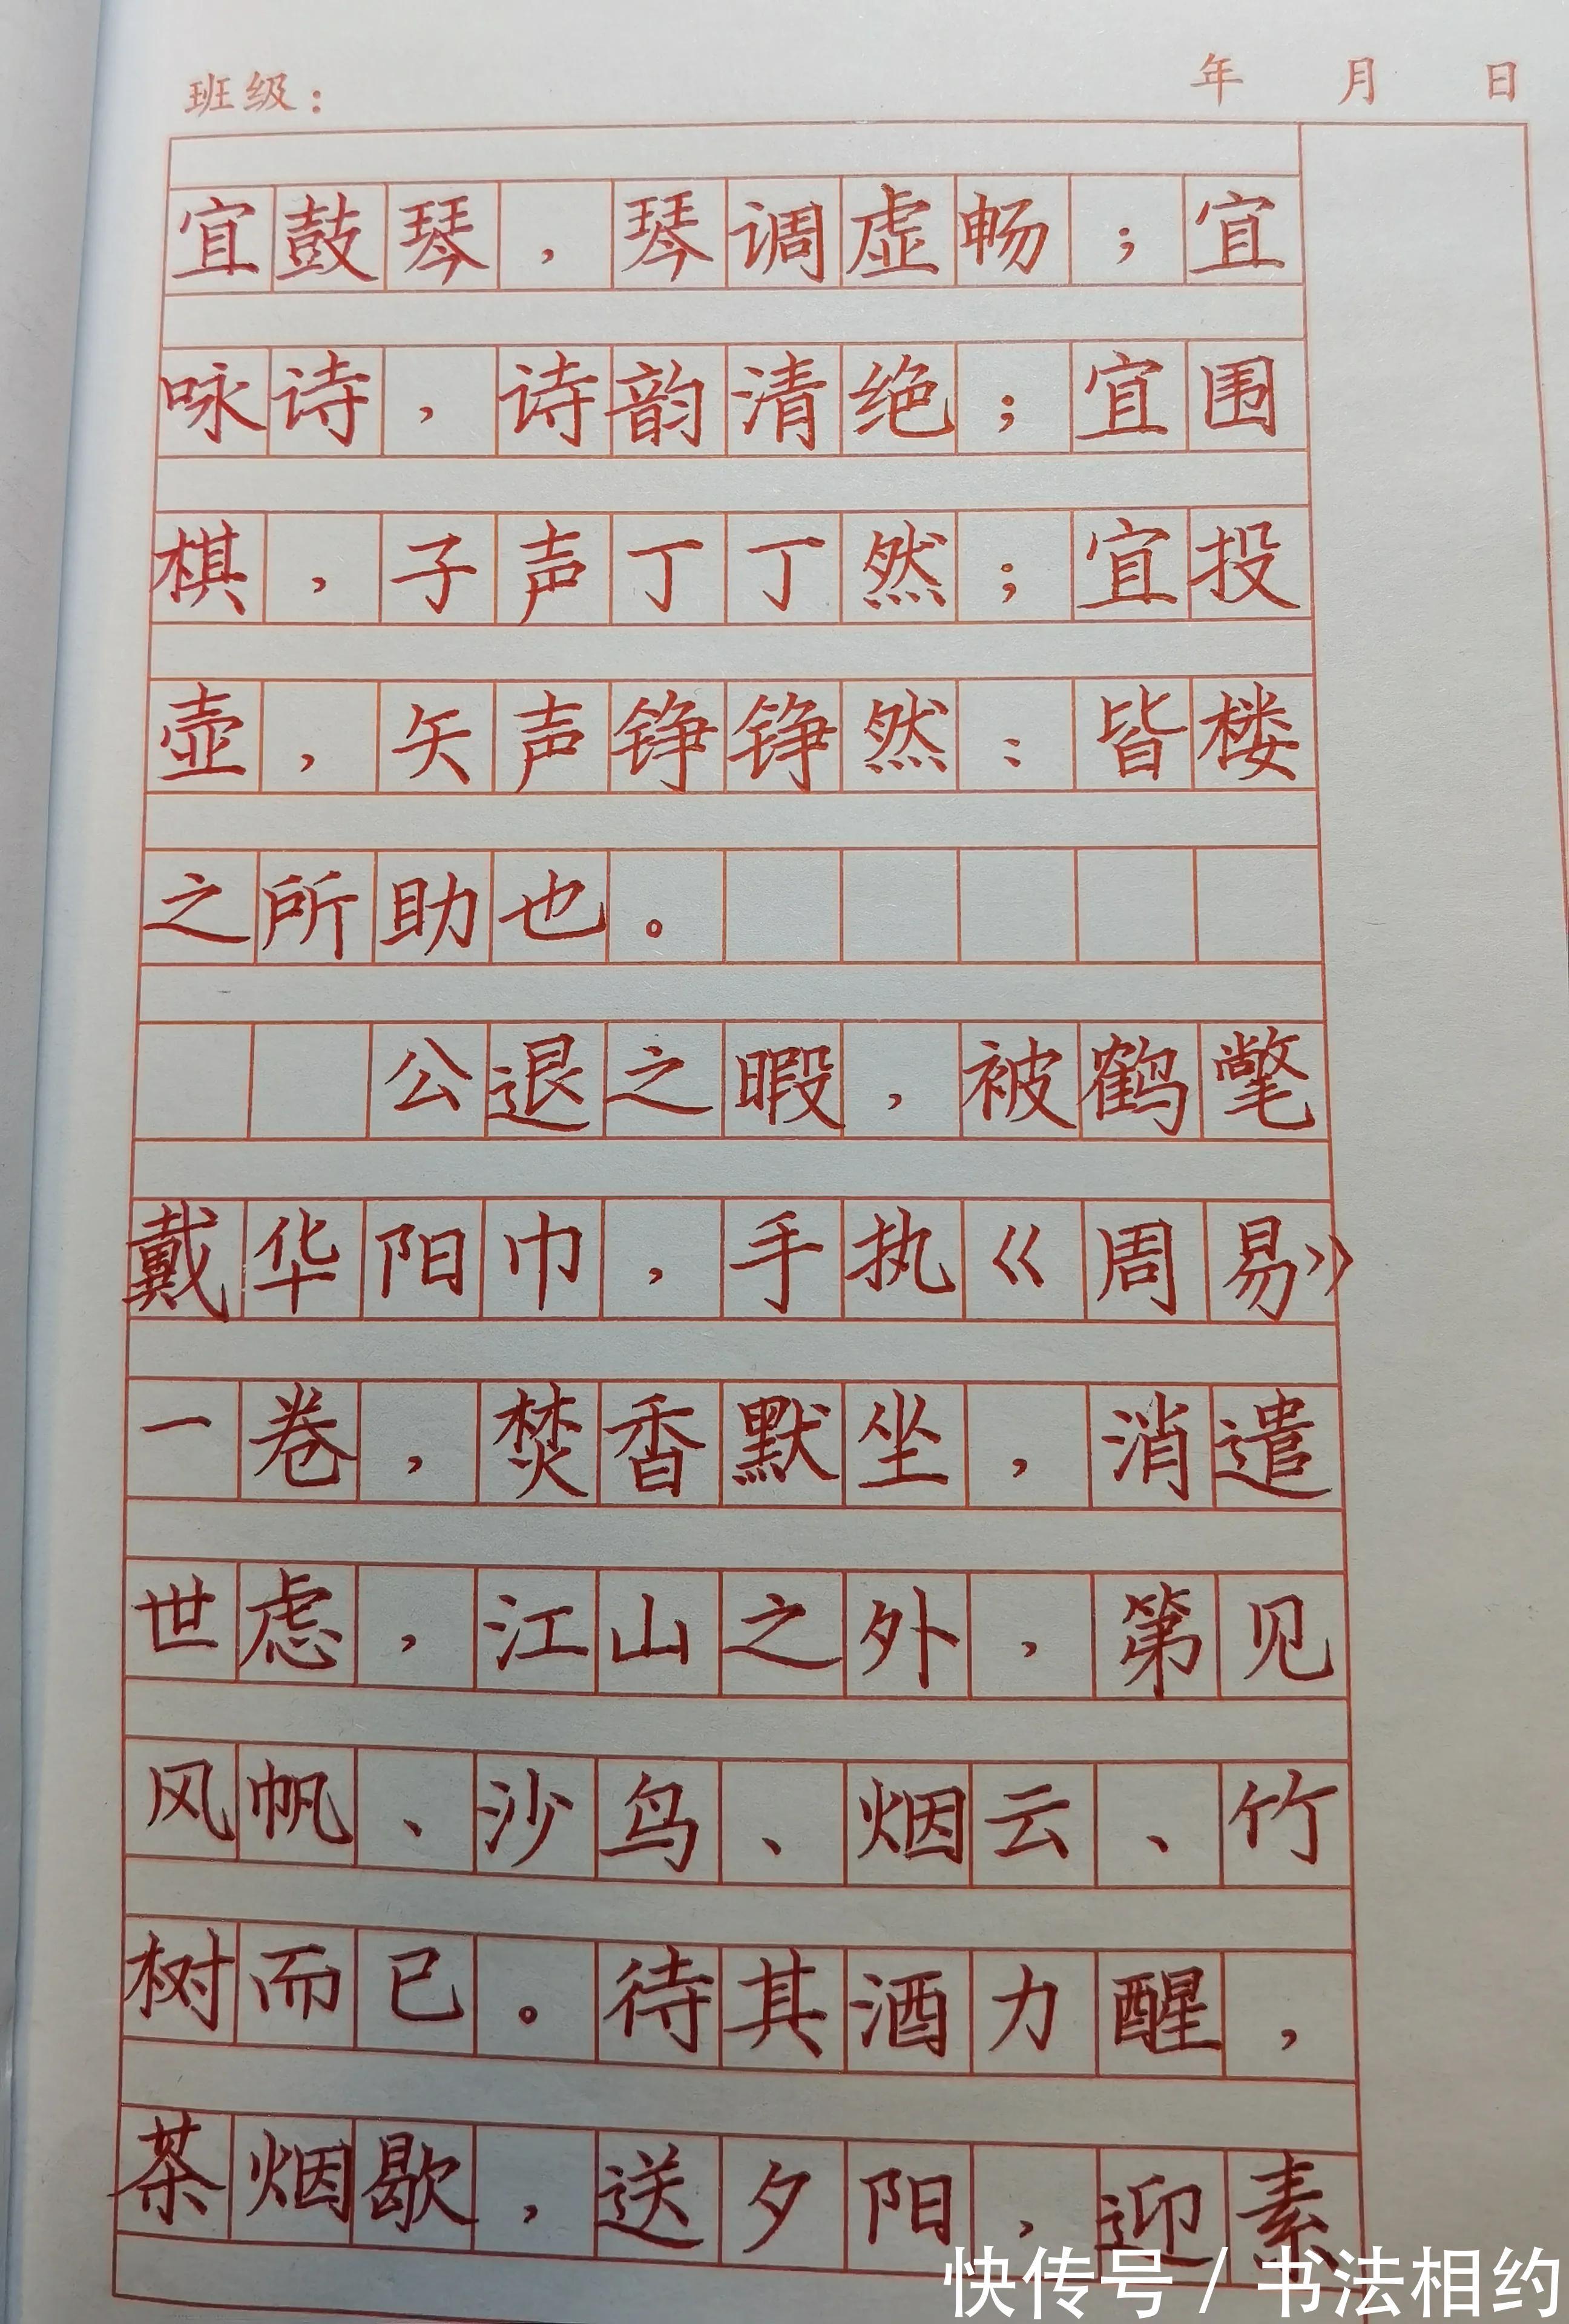 班级： 年 月 日
宜鼓琴，琴调虚畅；宜
咏诗，诗韵清绝；宜围
棋，子声丁丁然；宜投
壶，矢声铮铮然：皆楼
之所助也。
公退之暇，被鹤氅
戴华阳巾，手执《周易》
一卷，焚香默坐，消遣
世虑，江山之外，第见
风帆、沙鸟、烟云、竹
树而已。待其酒力醒，
茶烟歇，送夕阳，迎素
快传号 / 书法相约